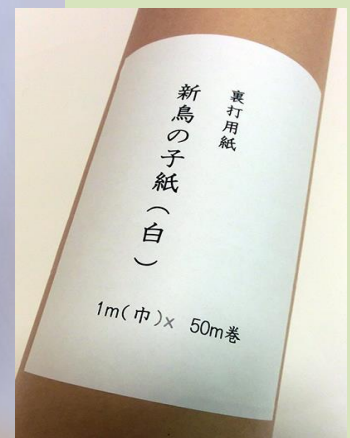 裏打用紙
新鳥の子紙(白)
1m(巾)x 50m巻